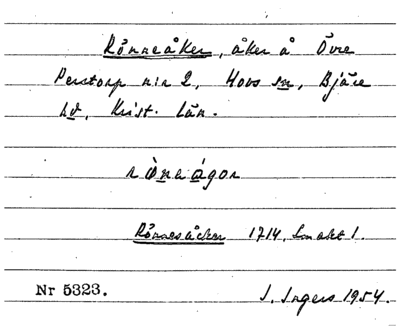 Rönneåker, åker å Övre
Perstorp nr 2, Hovs sn, Bjäre
hd, Krist. län.
Rönnesåcker 1714, Lm akt 1.
Nr 5323.
I. Ingers 1954.